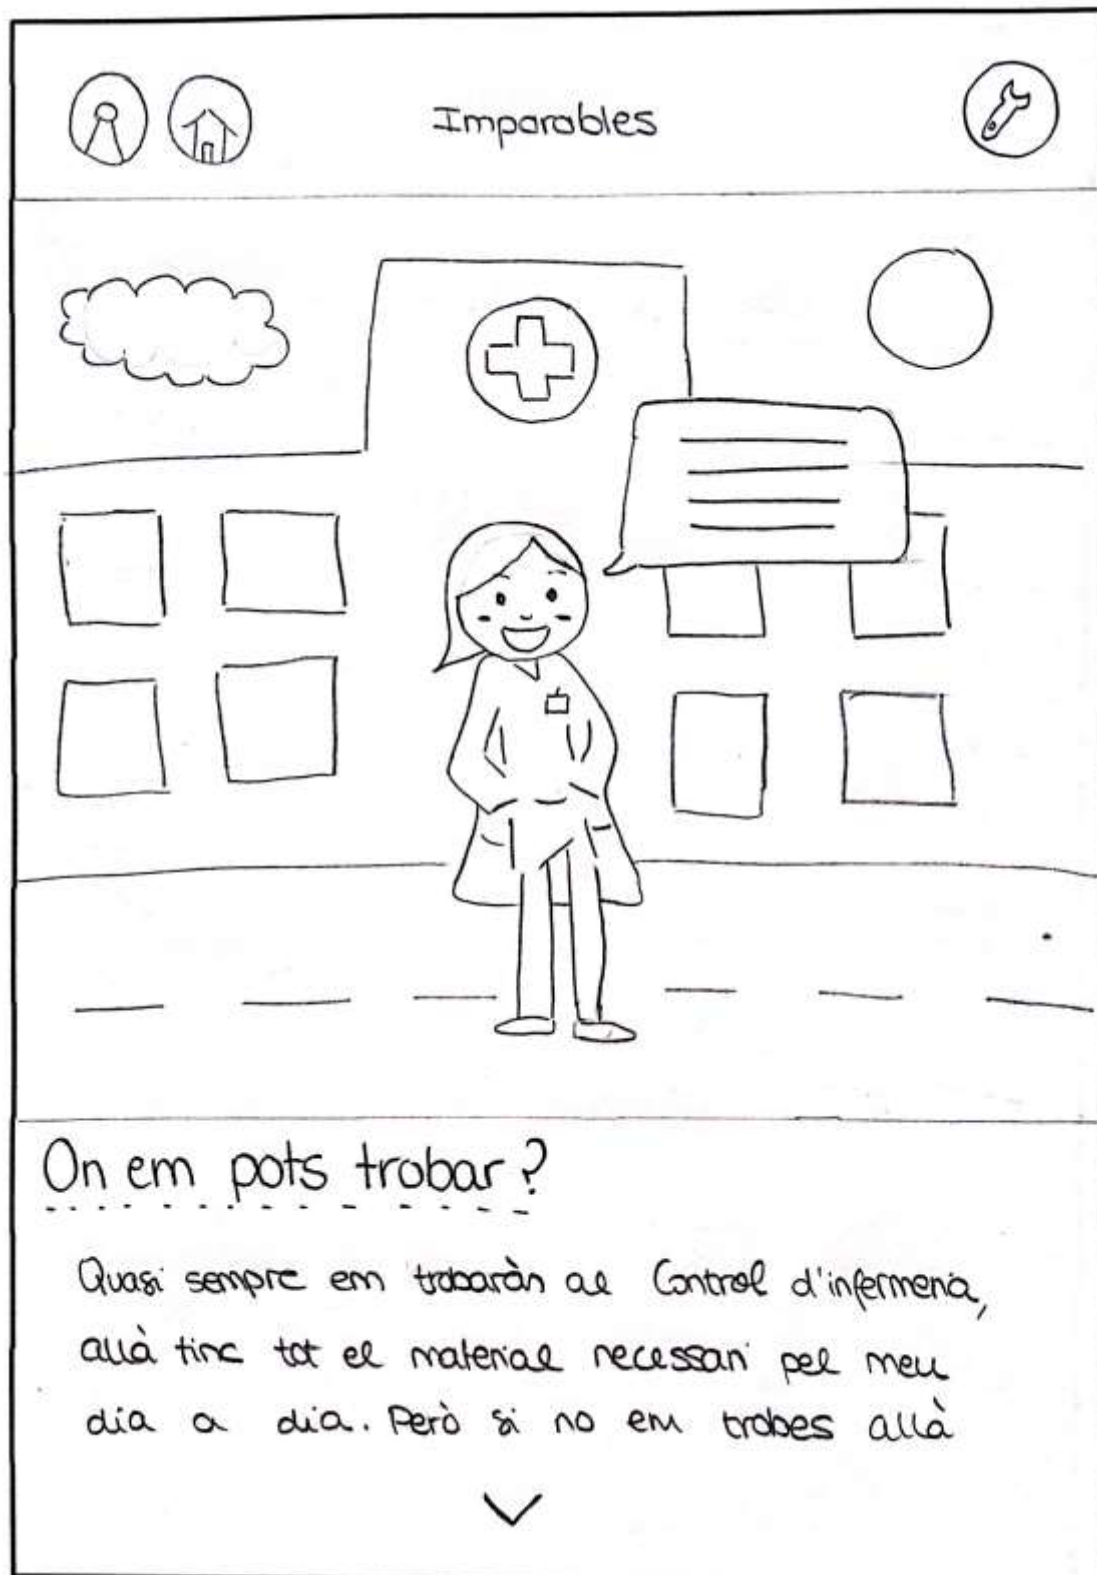 Imparables
On em pots trobar?
Quasi sempre em trobaràn al Control d'infermeria,
allà tinc tot el material necessari pel meu
dia a dia. Però si no em trobes allà